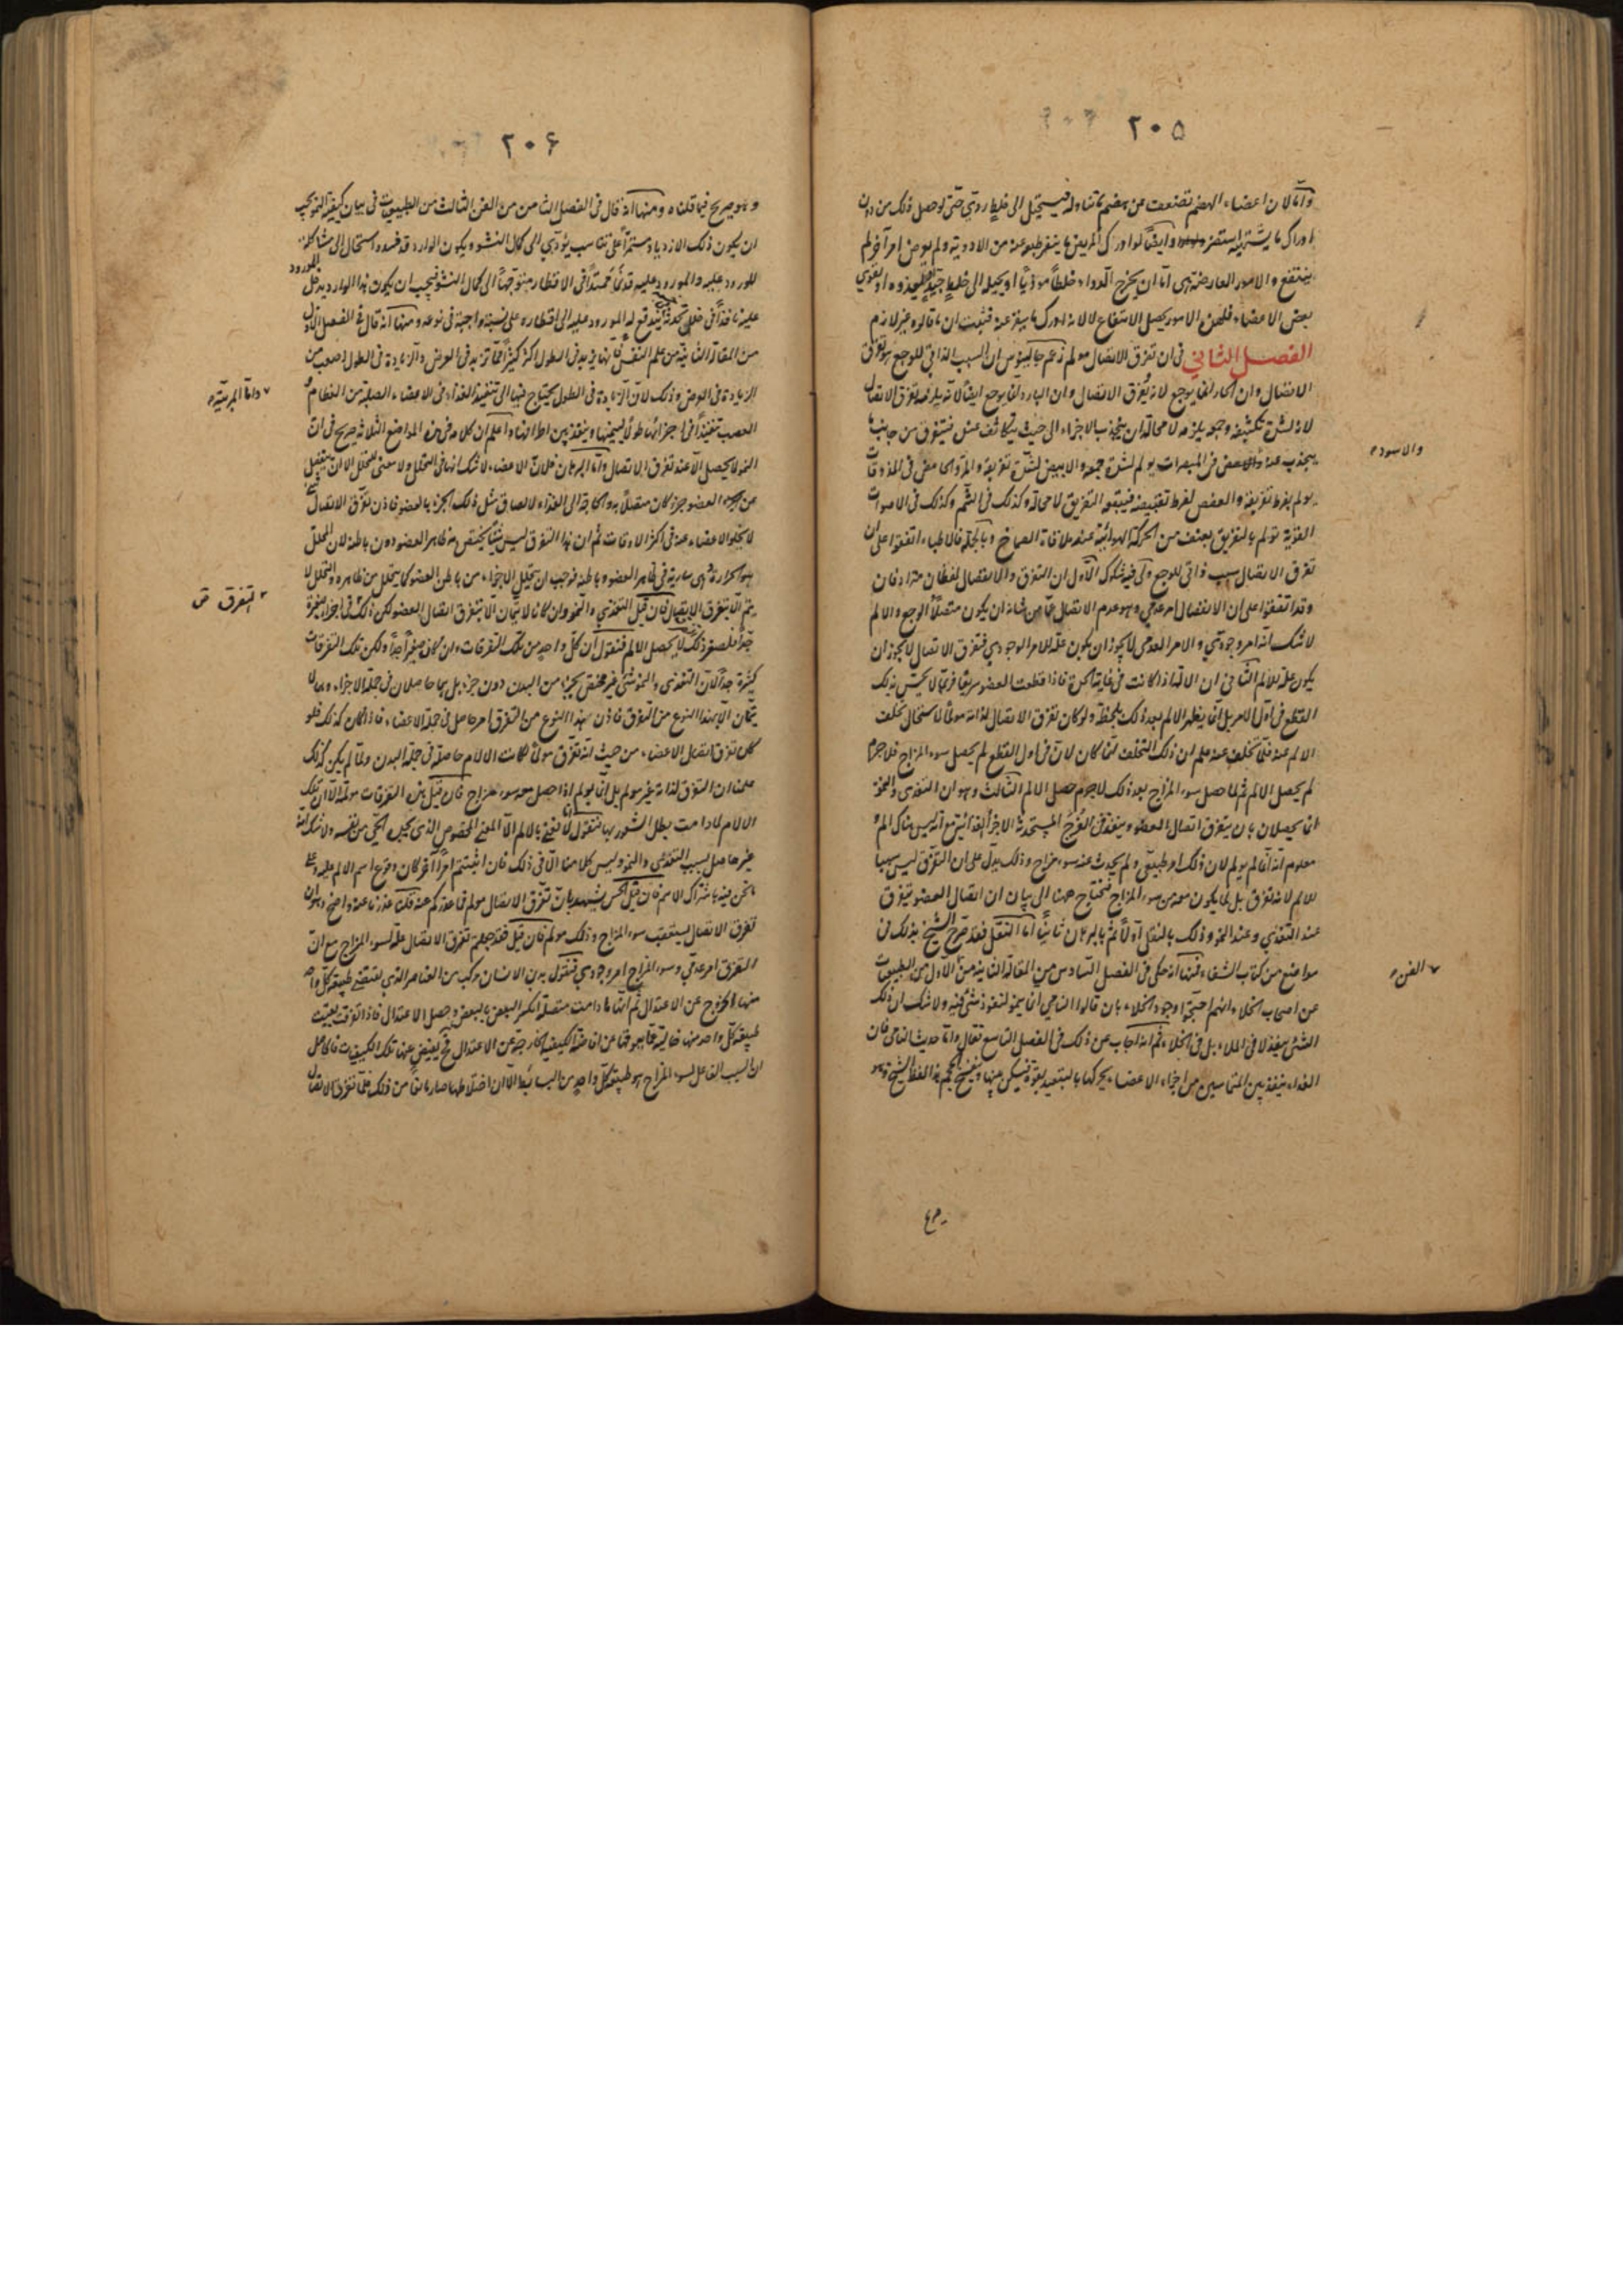 ٢٠٥
واما لان اعضاء الهضم تضعف عن هضم ما تناوله فيستحيل الى خلط ردى حتى لو حصل ذلك من دون
ادراك ما يشتهيه استضر وايضا لو ادرك المريض ما ينفر طبعه عنه من الادوية ولم يعرض امر آخر لم
ينتفع والامور العارضة هى اما ان يخرج الدواء خلطا موذيا او يحيله الى خلط جيد او يقوى
بعض الاعضاء فلهذه الامور يحصل الانتفاع لا لانه ادرك ما ينفر عنه فثبت ان ما قالوه غير لازم
الفصل الثانى فى ان تفرق الاتصال مولم زعم جالينوس ان السبب الذاتى للوجع هو تفرق
الاتصال وان الحار انما يوجع لانه يفرق الاتصال وان البارد انما يوجع ايضا لانه يلزمه تفرق الاتصال
لانه لشدة تكثيفه وجمعه يلزمه لا محالة ان ينجذب الاجزاء الى حيث يتكاثف عنده فيتفرق من جانب ما
ينجذب عنه فى المبصرات يولم لشدة جمعه والابيض لشدة تفريقه والمر والحامض فى المذوقات
يولم بفرط تفريقه والعفص لفرط تقبيضه فيتبعه التفريق لا محالة وكذلك فى الشم وكذلك فى الاصوات
القوية تولم بالتفريق بعنف من الحركة الهوائية عند ملاقاة الصماخ وبالجملة فالاطباء اتفقوا على ان
تفرق الاتصال سبب ذاتى للوجع ولى فيه شكوك الاول ان التفرق والانفصال لفظان مترادفان
وقد اتفقوا على ان الانفصال امر عدمى وهو عدم الاتصال عما من شانه ان يكون متصلا والوجع والالم
لا شك انه امر وجودى والامر العدمى لا يجوز ان يكون علة للامر الوجودى فتفرق الاتصال لا يجوز ان
يكون علة للالم الثانى ان الالة اذا كانت فى غاية الحدة فاذا قطعت العضو سريعا فربما لا يحس بذلك
القطع فى اول الامر بل انما يظهر الالم بعد ذلك بلحظة ولو كان تفرق الاتصال لذاته مولما لاستحال تخلف
الالم عنه فلما تخلف عنه علم ان ذلك التخلف انما كان لان فى اول القطع لم يحصل سوء المزاج فلا جرم
لم يحصل الالم ثم لما حصل سوء المزاج بعد ذلك لا جرم حصل الالم الثالث وهو ان التغذى والنمو
انما يحصلان بان يتفرق اتصال العضو وينفذ فى الفرج المستحدثة الاجزاء الغذائية مع انه ليس هناك الم
معلوم انه انما لم يولم لان ذلك امر طبيعى ولم يحدث عنه سوء مزاج وذلك يدل على ان التفرق ليس سببا
للالم لانه تفرق بل لما يكون معه من سوء المزاج فنحتاج ههنا الى بيان ان اتصال العضو يتفرق
عند التغذى وعند النمو وذلك بالنقل اولا ثم بالبرهان ثانيا اما النقل فقد صرح الشيخ بذلك فى
مواضع من كتاب الشفاء فمنها انه حكى فى الفصل السادس من المقالة الثانية من الاول من الطبيعيات
عن اصحاب الخلاء انهم احتجوا وجود الخلاء بان قالوا النامى انما ينمو لنفوذ شئ فيه ولا شك ان ذلك
الشئ ينفذ لا فى الملاء بل فى الخلاء ثم انه اجاب عن ذلك فى الفصل التاسع فقال واما حديث النامى فان
الغذاء ينفذ بين المتماسين من اجزاء الاعضاء يحركها بالتبعيد بقوة فيسكن بينها وينفسح الحجم هذا لفظ الشيخ وهو
والاسود
الفن
٢٠۶
وهو صريح فيما قلناه ومنها انه قال فى الفصل الثامن من الفن الثالث من الطبيعيات فى بيان كيفية النمو يجب
ان يكون ذلك الازدياد مستمرا على تناسب يؤدى الى كمال النشو ويكون الوارد قد فسد واستحال الى مشاكلة
المورود عليه والمورود عليه قد نما ممتدا فى الاقطار متوجها الى كمال النشو فيجب ان يكون هذا الوارد يدخل
عليه نافذا فى خلل تحدثه يندفع له المورود عليه الى اقطاره على نسبة واجبة فى نوعه ومنها انه قال فى الفصل الاول
من المقالة الثانية من علم النفس فانها تزيد فى الطول اكثر كثيرا مما تزيد فى العرض والزيادة فى الطول اصعب من
الزيادة فى العرض وذلك لان الزيادة فى الطول يحتاج فيها الى تنفيذ الغذاء فى الاعضاء الصلبة من العظام و
العصب تنفيذا فى اجزائها طولا لينميها وينفذ بين اطرافها واعلم ان كلامه فى هذه المواضع الثلاثة صريح فى ان
النمو لا يحصل الا عند تفرق الاتصال واما البرهان فلان الاعضاء لا شك انها فى التحلل ولا معنى للتحلل الا ان ينفصل
عن العضو جزء كان متصلا به والحاجة الى الغذاء لالصاق مثل ذلك الجزء بالعضو فاذن تفرق الاتصال
لا يخلو الاعضاء عنه فى اكثر الاوقات ثم ان هذا التفرق ليس شيئا يختص به ظاهر العضو دون باطنه لان المحلل
هو الحرارة وهى سارية فى ظاهر العضو وباطنه فوجب ان يتحلل الاجزاء من باطن العضو كما يتحلل من ظاهره والتحلل لا
يتم الا بتفرق الاتصال فان قيل التغذى والنمو وان كانا لا يتمان الا بتفرق اتصال العضو لكن ذلك فى اجزاء صغيرة
جدا فلصغر ذلك لا يحصل الالم فنقول ان كل واحد من تلك التفرقات وان كان صغيرا جدا ولكن تلك التفرقات
كثيرة جدا لان التغذى والنمو شئ غير مختص بجزء من البدن دون جزء بل هما حاصلان فى جملة الاجزاء وهما لا
يتمان الا بهذا النوع من التفرق فاذن هذا النوع من التفرق امر حاصل فى جملة الاعضاء فاذا كان كذلك فلو
كان تفرق اتصال الاعضاء من حيث انه تفرق مولما لكانت الالام حاصلة فى جملة البدن ولما لم يكن كذلك
علمنا ان التفرق لذاته غير مولم بل انما يولم اذا حصل معه سوء مزاج فان قيل هذه التفرقات مولمة الا ان تلك
الالام لما دامت بطل الشعور بها فنقول لا نعنى بالالم الا المعنى المخصوص الذى يحس الحى من نفسه ولا شك انه
غير حاصل بسبب التغذى والنمو وليس كلامنا الا فى ذلك فان اثبتم امرا آخر كان وقوع اسم الالم عليه وعلى
ما نحن فيه باشتراك الاسم فان قيل الحس يشهد بان تفرق الاتصال مولم فما عذركم عنه قلت عذرنا عنه واضح وهو ان
تفرق الاتصال يستعقب سوء المزاج وذلك مولم فان قيل فقد جعلتم تفرق الاتصال علة لسوء المزاج مع ان
التفرق امر عدمى وسوء المزاج امر وجودى فنقول بدن الانسان مركب من العناصر الذى يقتضى طبيعة كل واحد
منها الخروج عن الاعتدال ثم انها ما دامت متصلة انكسر البعض بالبعض وحصل الاعتدال فاذا تفرقت بقيت
طبيعة كل واحد منها خالية عما يعوقها عن افاضة الكيفية الخارجة عن الاعتدال فح يفيض عنها تلك الكيفيات فالحاصل
ان السبب الفاعل لسوء المزاج هو طبيعة كل واحد من البسائط الا ان اختلاطها صار مانعا من ذلك فلما تفرق الاتصال
واما البرهان
التفرق